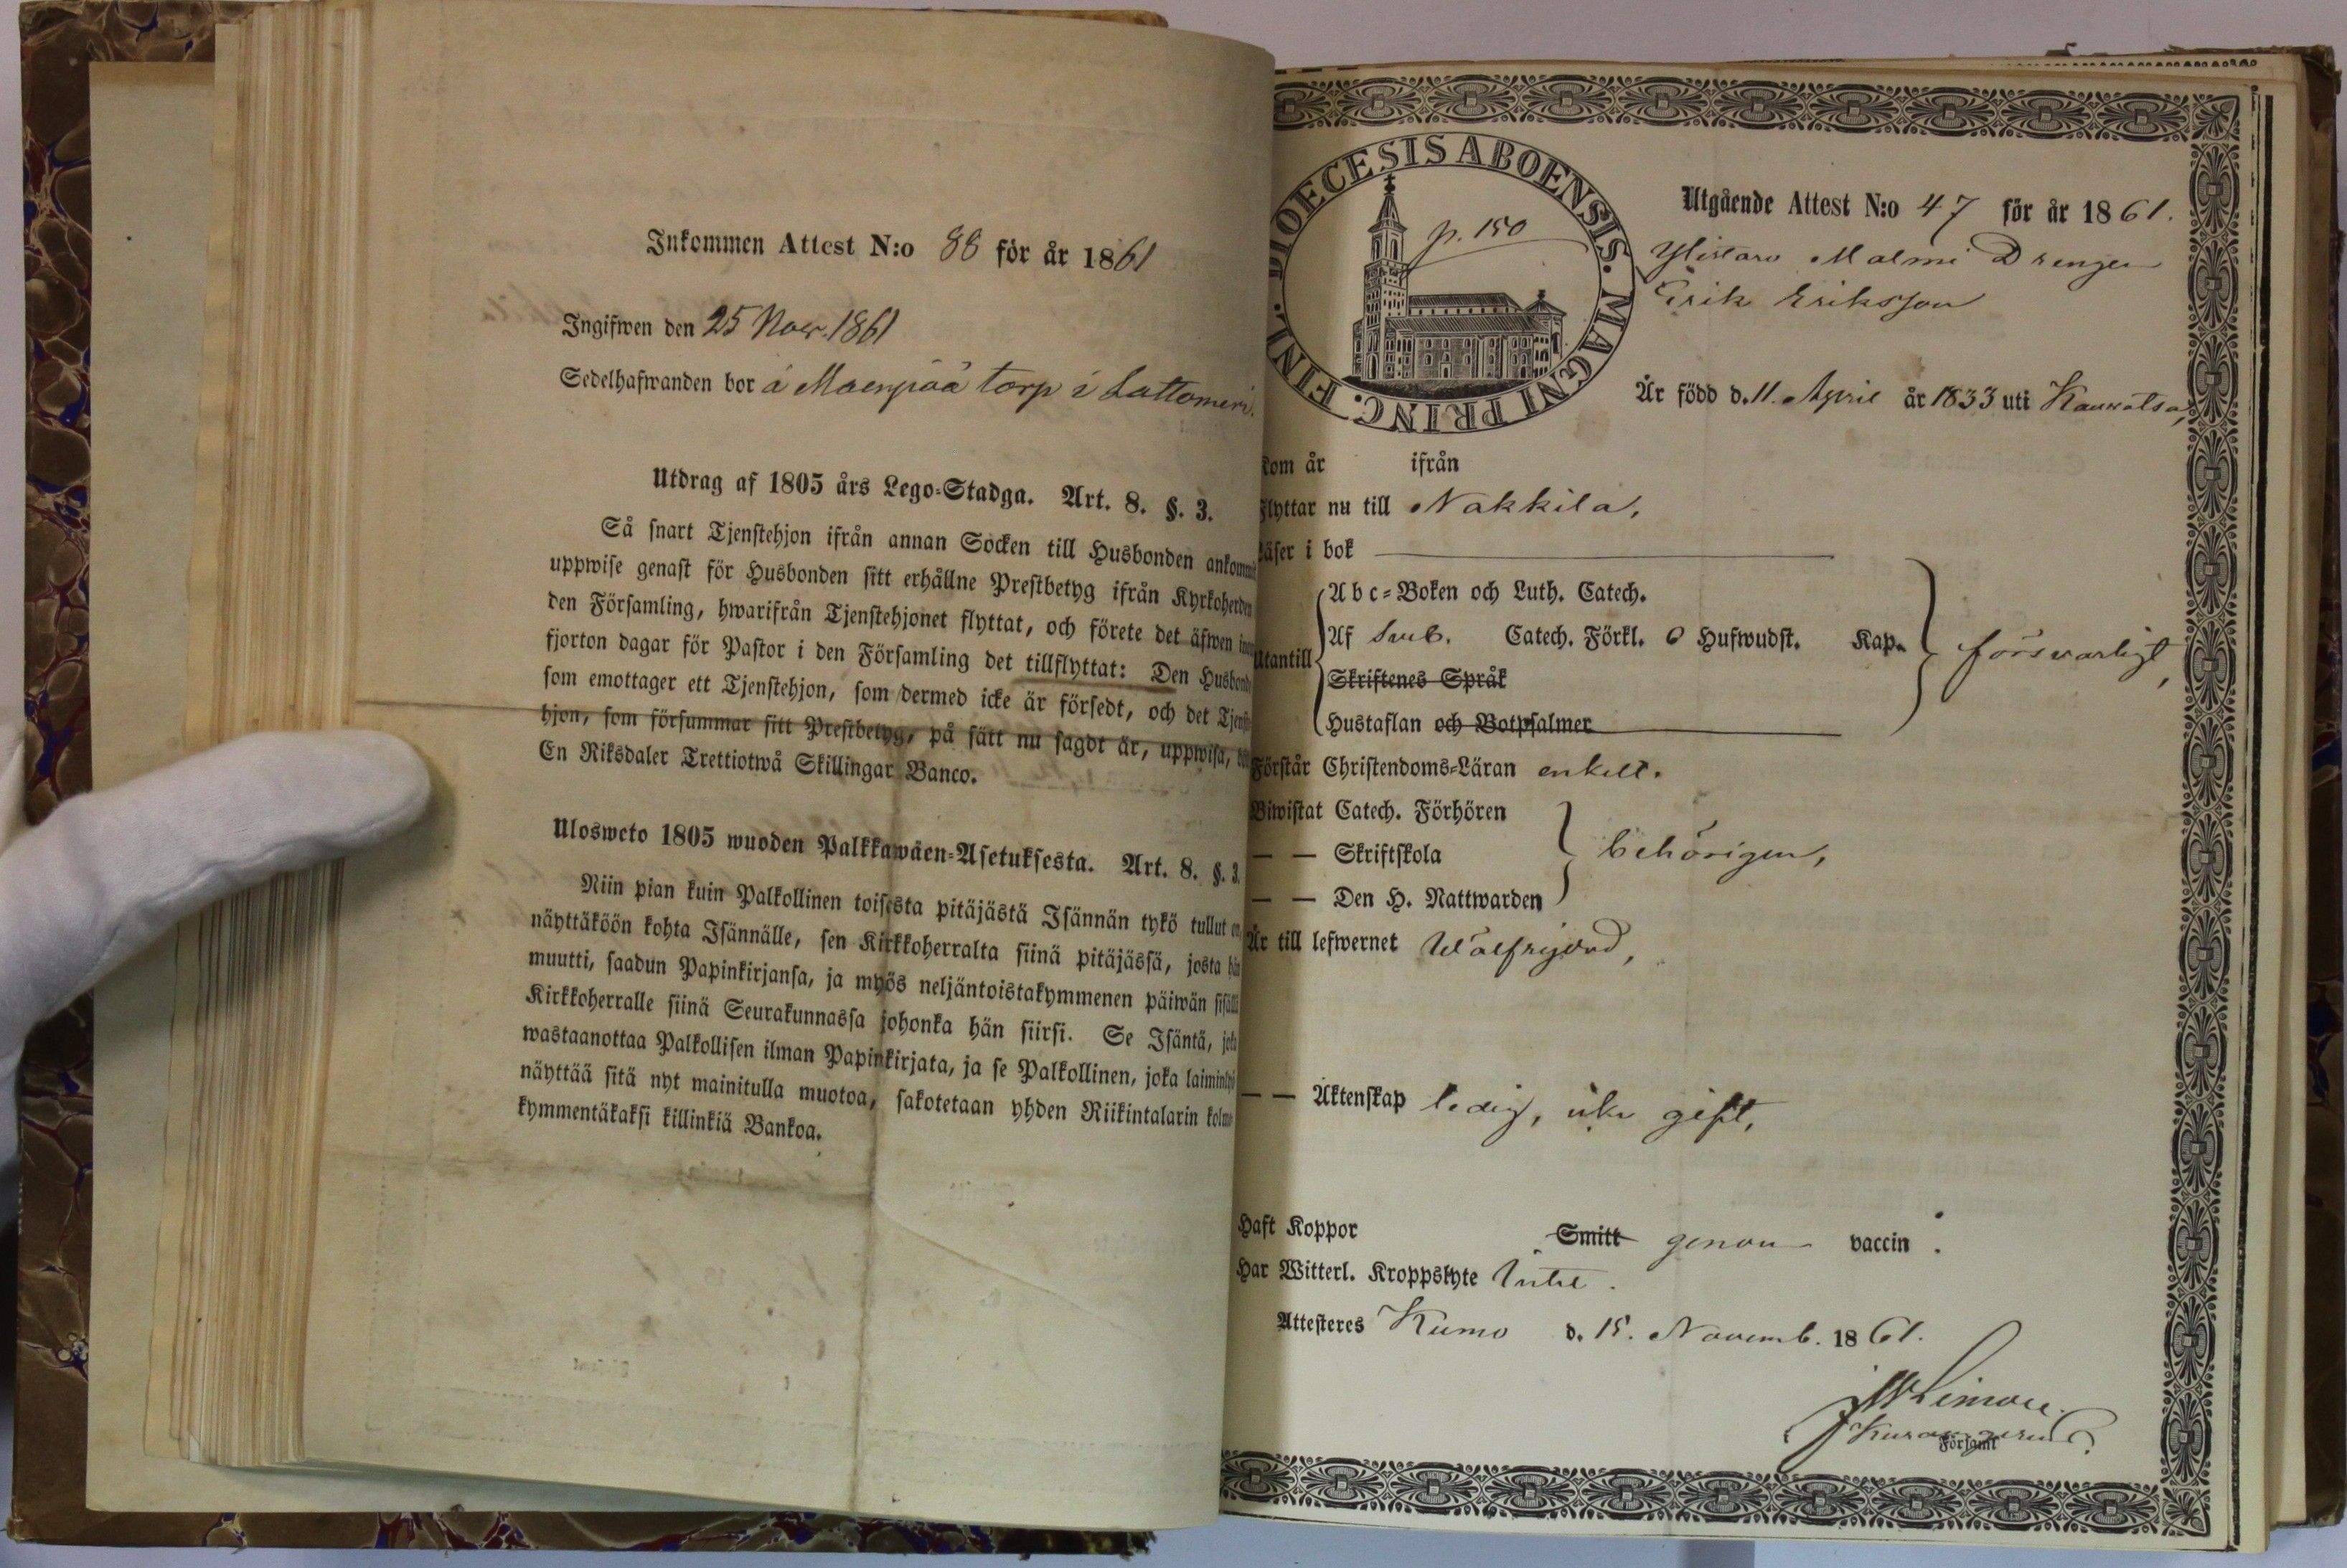 Inkommen Attest N:o 88 för år 1861
Ingifwen den 25 Nov. 1861
Sedelhafwanden bor å Maenpää torp i Lattomeri.
Utdrag af 1805 års Lego-Stadga. Art. 8. §. 3.
Så snart Tjenstehjon ifrån annan Socken till Husbonden ankommit
uppwise genast för Husbonden sitt erhållne Prestbetyg ifrån Kyrkoherden
den Församling, hwarifrån Tjenstehjonet flyttat, och förete det äfwen inom
fjorton dagar för Pastor i den Församling det tillflyttat: Den Husbonde
som emottager ett Tjenstehjon, som dermed icke är försedt, och det Tjenste
hjon, som försummar sitt Prestbetyg, på sätt nu sagdt är, uppwisa,
En Riksdaler Trettiotwå Skillingar Banco.
Ulosweto 1805 wuoden Palkkawäen-Asetuksesta. Art. 8. §. 3.
Niin pian kuin Palkollinen toisesta pitäjästä Isännän tykö tullut on,
näyttäköön kohta Isännälle, sen Kirkkoherralta siinä pitäjässä, josta hän
muutti, saadun Papinkirjansa, ja myös neljäntoistakymmenen päiwän sisällä
Kirkkoherralle siinä Seurakunnassa johonka hän siirsi. Se Isäntä, joka
wastaanottaa Palkollisen ilman Papinkirjata, ja se Palkollinen, joka laiminlyö
näyttää sitä nyt mainitulla muotoa, sakotetaan yhden Riikintalarin kolme
kymmentäkaksi killinkiä Bankoa.
DIOECESIS ABOENSIS. MAGNI PRINC. FINL.
p. 150
Utgående Attest N:o 47 för år 1861.
Ylistaro Malmi Drengen
Erik Eriksson
Är född d. 11. April år 1833 uti Kauvatsa,
Kom år ifrån
Flyttar nu till Nakkila,
Läser i bok
Utantill
Abc-Boken och Luth. Catech.
Af Sveb. Catech. Förkl. 0 Hufwudst. Kap.
Skriftenes Språk
Hustaflan och Botpsalmer
försvarligt,
Förstår Christendoms-Läran enkelt.
Biwistat Catech. Förhören
— — Skriftskola
— — Den H. Nattwarden
behörigen,
Är till lefwernet Wälfrejdad,
— — Äktenskap ledig, icke gift,
Haft Koppor Smitt genom vaccin.
Har Witterl. Kroppslyte Intet.
Attesteres Kumo d. 15. Novemb. 1861.
Församl